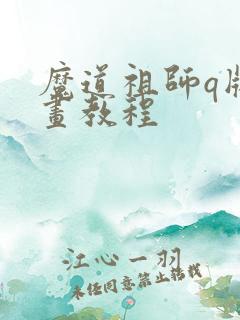 魔道祖師q版
畫教程
江心一羽
未经同意禁止转载